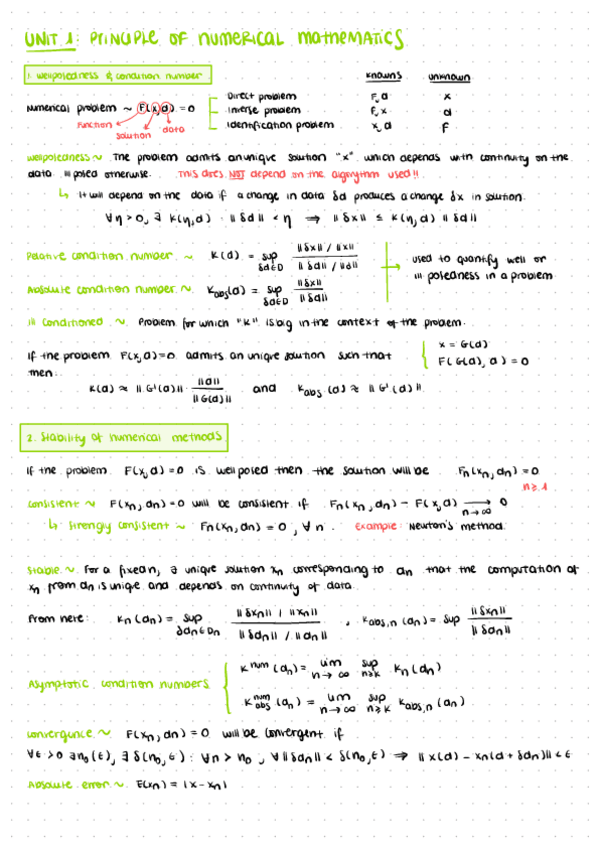 UNIT 1: PRINCIPLE OF NUMERICAL MATHEMATICS
1. Wellposedness & condition number
knowns unknown
Numerical problem ~ F(x,d) = 0
function solution data
Direct problem F, d x
Inverse problem F, x d
Identification problem x, d F
Wellposedness ~ The problem admits an unique solution "x" which depends with continuity on the
data. Ill posed otherwise. This does NOT depend on the algorythm used!!
↳ It will depend on the data if a change in data δd produces a change δx in solution.
∀η > 0, ∃ K(η,d) : ||δd|| < η ⇒ ||δx|| ≤ K(η,d) ||δd||
Relative condition number ~ K(d) = sup δd∈D ||δx|| / ||x|| / ||δd|| / ||d||
Absolute condition number ~ Kabs(d) = sup δd∈D ||δx|| / ||δd||
→ used to quantify well or
ill posedness in a problem
Ill conditioned ~ Problem for which "K" is big in the context of the problem.
If the problem F(x,d)=0 admits an unique solution such that { x = G(d)
F(G(d), d) = 0
then:
K(d) ≈ ||G'(d)|| ||d|| / ||G(d)|| and Kabs(d) ≈ ||G'(d)||
2. Stability of numerical methods
If the problem F(x,d) = 0 is well posed then the solution will be Fn(xn, dn) = 0
n ≥ 1
Consistent ~ F(xn, dn) = 0 will be consistent if Fn(xn, dn) - F(x,d) → n→∞ 0
↳ Strongly consistent ~ Fn(xn, dn) = 0, ∀n. Example: Newton's method.
Stable ~ For a fixed n, ∃ unique solution xn corresponding to dn that the computation of
xn from dn is unique and depends on continuity of data.
From here: Kn(dn) = sup δdn∈Dn ||δxn|| / ||xn|| / ||δdn|| / ||dn|| , Kabs,n(dn) = sup ||δxn|| / ||δdn||
Asymptotic condition numbers { K^num(dn) = lim n→∞ sup n≥k Kn(dn)
K^num abs(dn) = lim n→∞ sup n≥k Kabs,n(dn)
Convergence ~ F(xn, dn) = 0 will be convergent if
∀ε > 0 ∃n0(ε), ∃δ(n0,ε) : ∀n > n0, ∀||δdn|| < δ(n0,ε) ⇒ ||x(d) - xn(d + δdn)|| < ε
Absolute error ~ E(xn) = |x - xn|